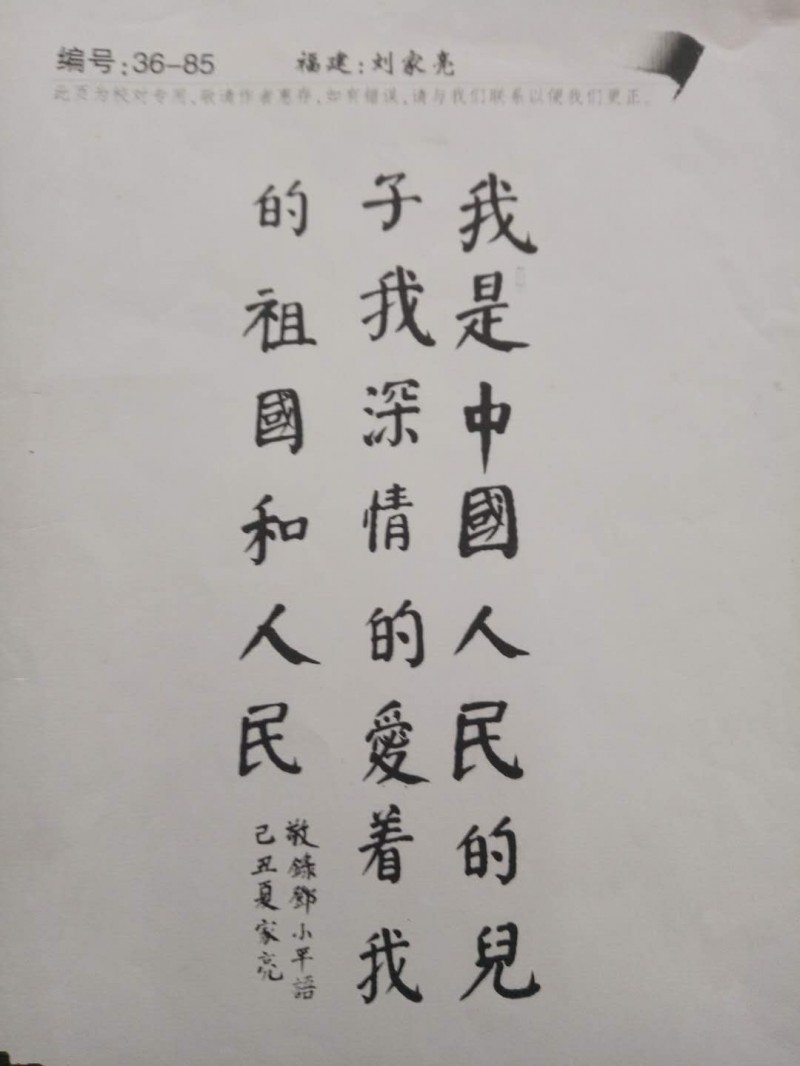 编号:36-85 福建:刘家亮
此页为校对专用,敬请作者惠存,如有错误,请与我们联系以便我们更正。
我是中國人民的兒
子我深情的愛着我
的祖國和人民
敬錄鄧小平語
己丑夏家亮